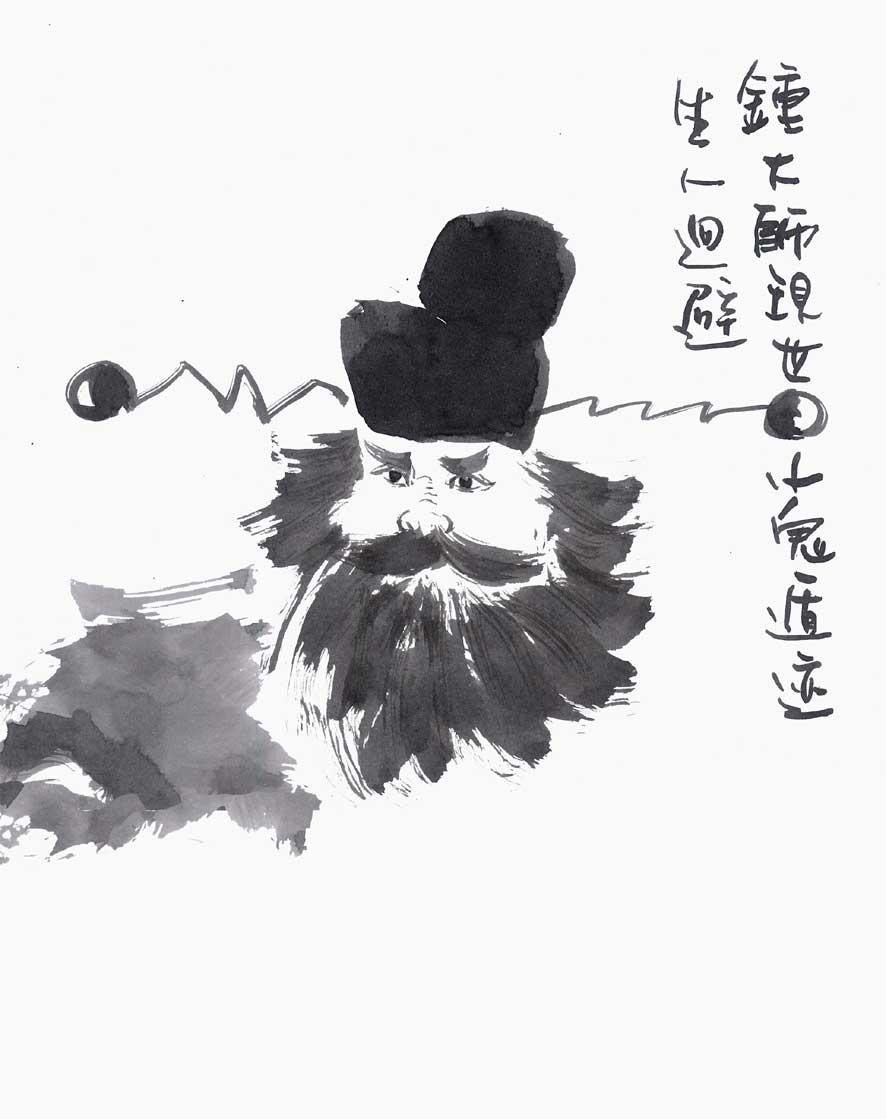 鍾大師現世小鬼遁迹
生人迴避